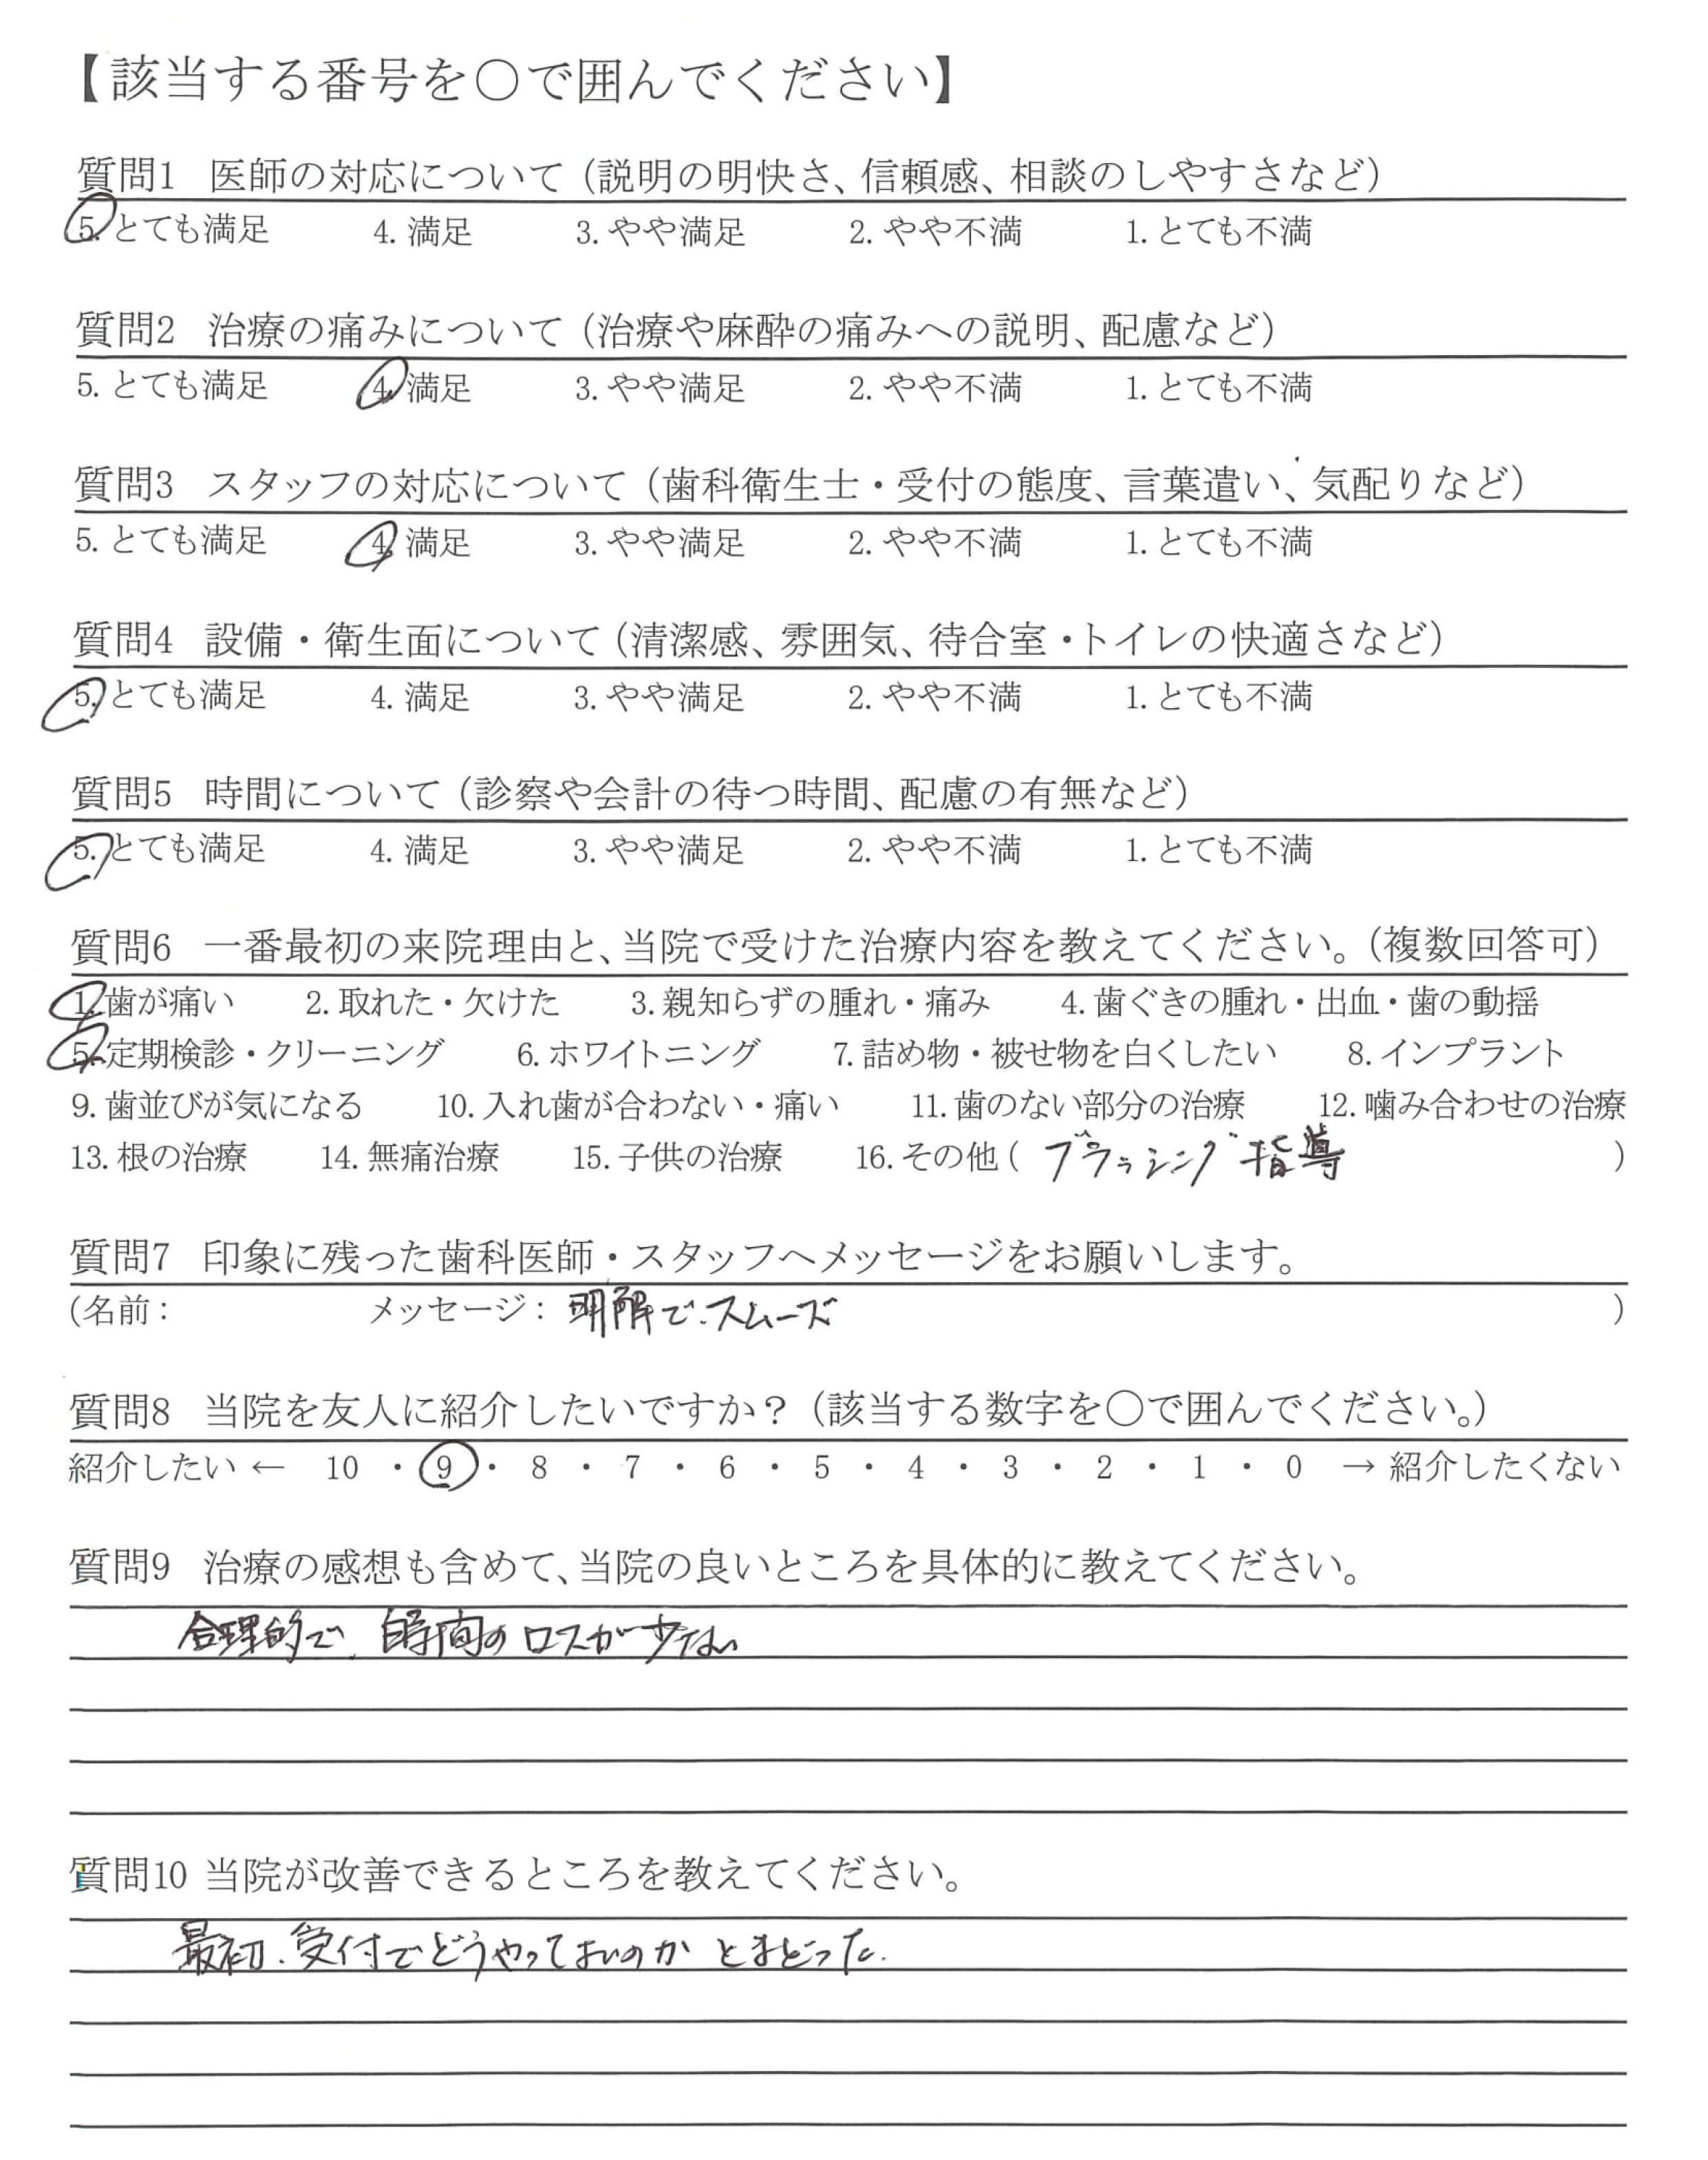 【該当する番号を○で囲んでください】
質問1 医師の対応について（説明の明快さ、信頼感、相談のしやすさなど）
5. とても満足 4. 満足 3. やや満足 2. やや不満 1. とても不満
質問2 治療の痛みについて（治療や麻酔の痛みへの説明、配慮など）
5. とても満足 4. 満足 3. やや満足 2. やや不満 1. とても不満
質問3 スタッフの対応について（歯科衛生士・受付の態度、言葉遣い、気配りなど）
5. とても満足 4. 満足 3. やや満足 2. やや不満 1. とても不満
質問4 設備・衛生面について（清潔感、雰囲気、待合室・トイレの快適さなど）
5. とても満足 4. 満足 3. やや満足 2. やや不満 1. とても不満
質問5 時間について（診察や会計の待つ時間、配慮の有無など）
5. とても満足 4. 満足 3. やや満足 2. やや不満 1. とても不満
質問6 一番最初の来院理由と、当院で受けた治療内容を教えてください。（複数回答可）
1. 歯が痛い 2. 取れた・欠けた 3. 親知らずの腫れ・痛み 4. 歯ぐきの腫れ・出血・歯の動揺
5. 定期検診・クリーニング 6. ホワイトニング 7. 詰め物・被せ物を白くしたい 8. インプラント
9. 歯並びが気になる 10. 入れ歯が合わない・痛い 11. 歯のない部分の治療 12. 噛み合わせの治療
13. 根の治療 14. 無痛治療 15. 子供の治療 16. その他（ブラッシング指導）
質問7 印象に残った歯科医師・スタッフへメッセージをお願いします。
（名前： メッセージ：明解で.スムーズ）
質問8 当院を友人に紹介したいですか？（該当する数字を○で囲んでください。）
紹介したい ← 10 ・ 9 ・ 8 ・ 7 ・ 6 ・ 5 ・ 4 ・ 3 ・ 2 ・ 1 ・ 0 → 紹介したくない
質問9 治療の感想も含めて、当院の良いところを具体的に教えてください。
合理的で、時間のロスが少ない
質問10 当院が改善できるところを教えてください。
最初、受付でどうやってよいのか とまどった.